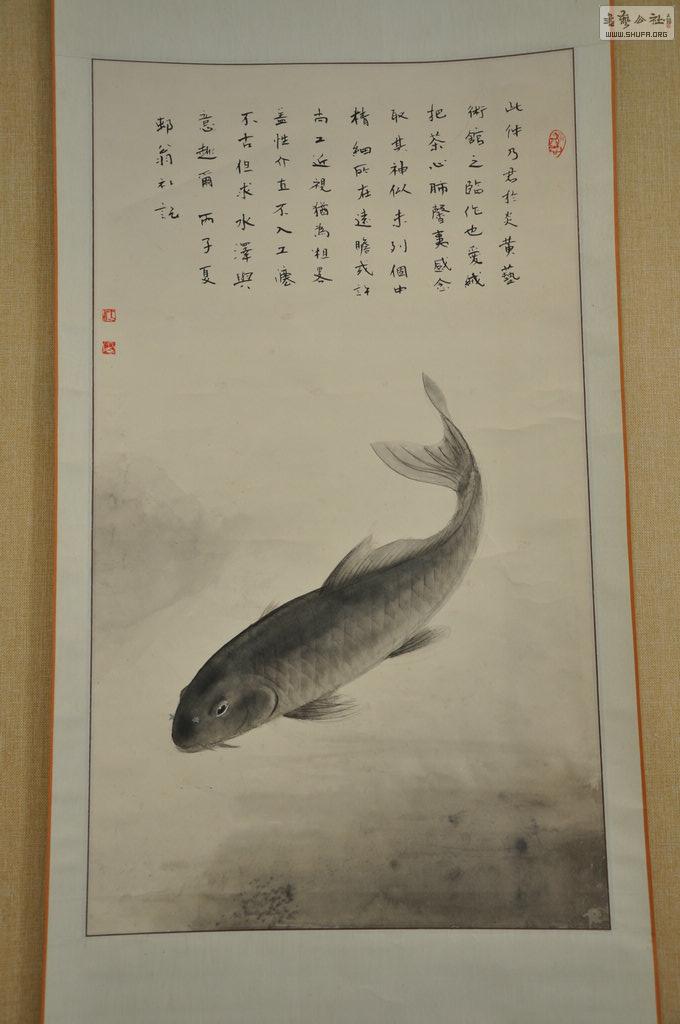 此件乃君於炎黃藝
術館之臨作也爰緘
把茶心肺馨夷感念
取其神似未列個中
精細所在遠瞻或許
尚工近視猶為粗畧
蓋性介直不入工
不古但求水澤與
意趣爾 丙子夏
邨翁礼記
WWW.SHUFA.ORG